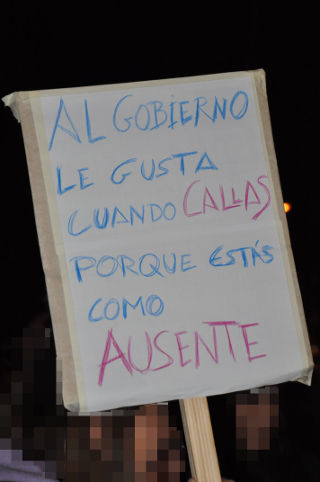 AL GOBIERNO
LE GUSTA
CUANDO CALLAS
PORQUE ESTÁS
COMO
AUSENTE